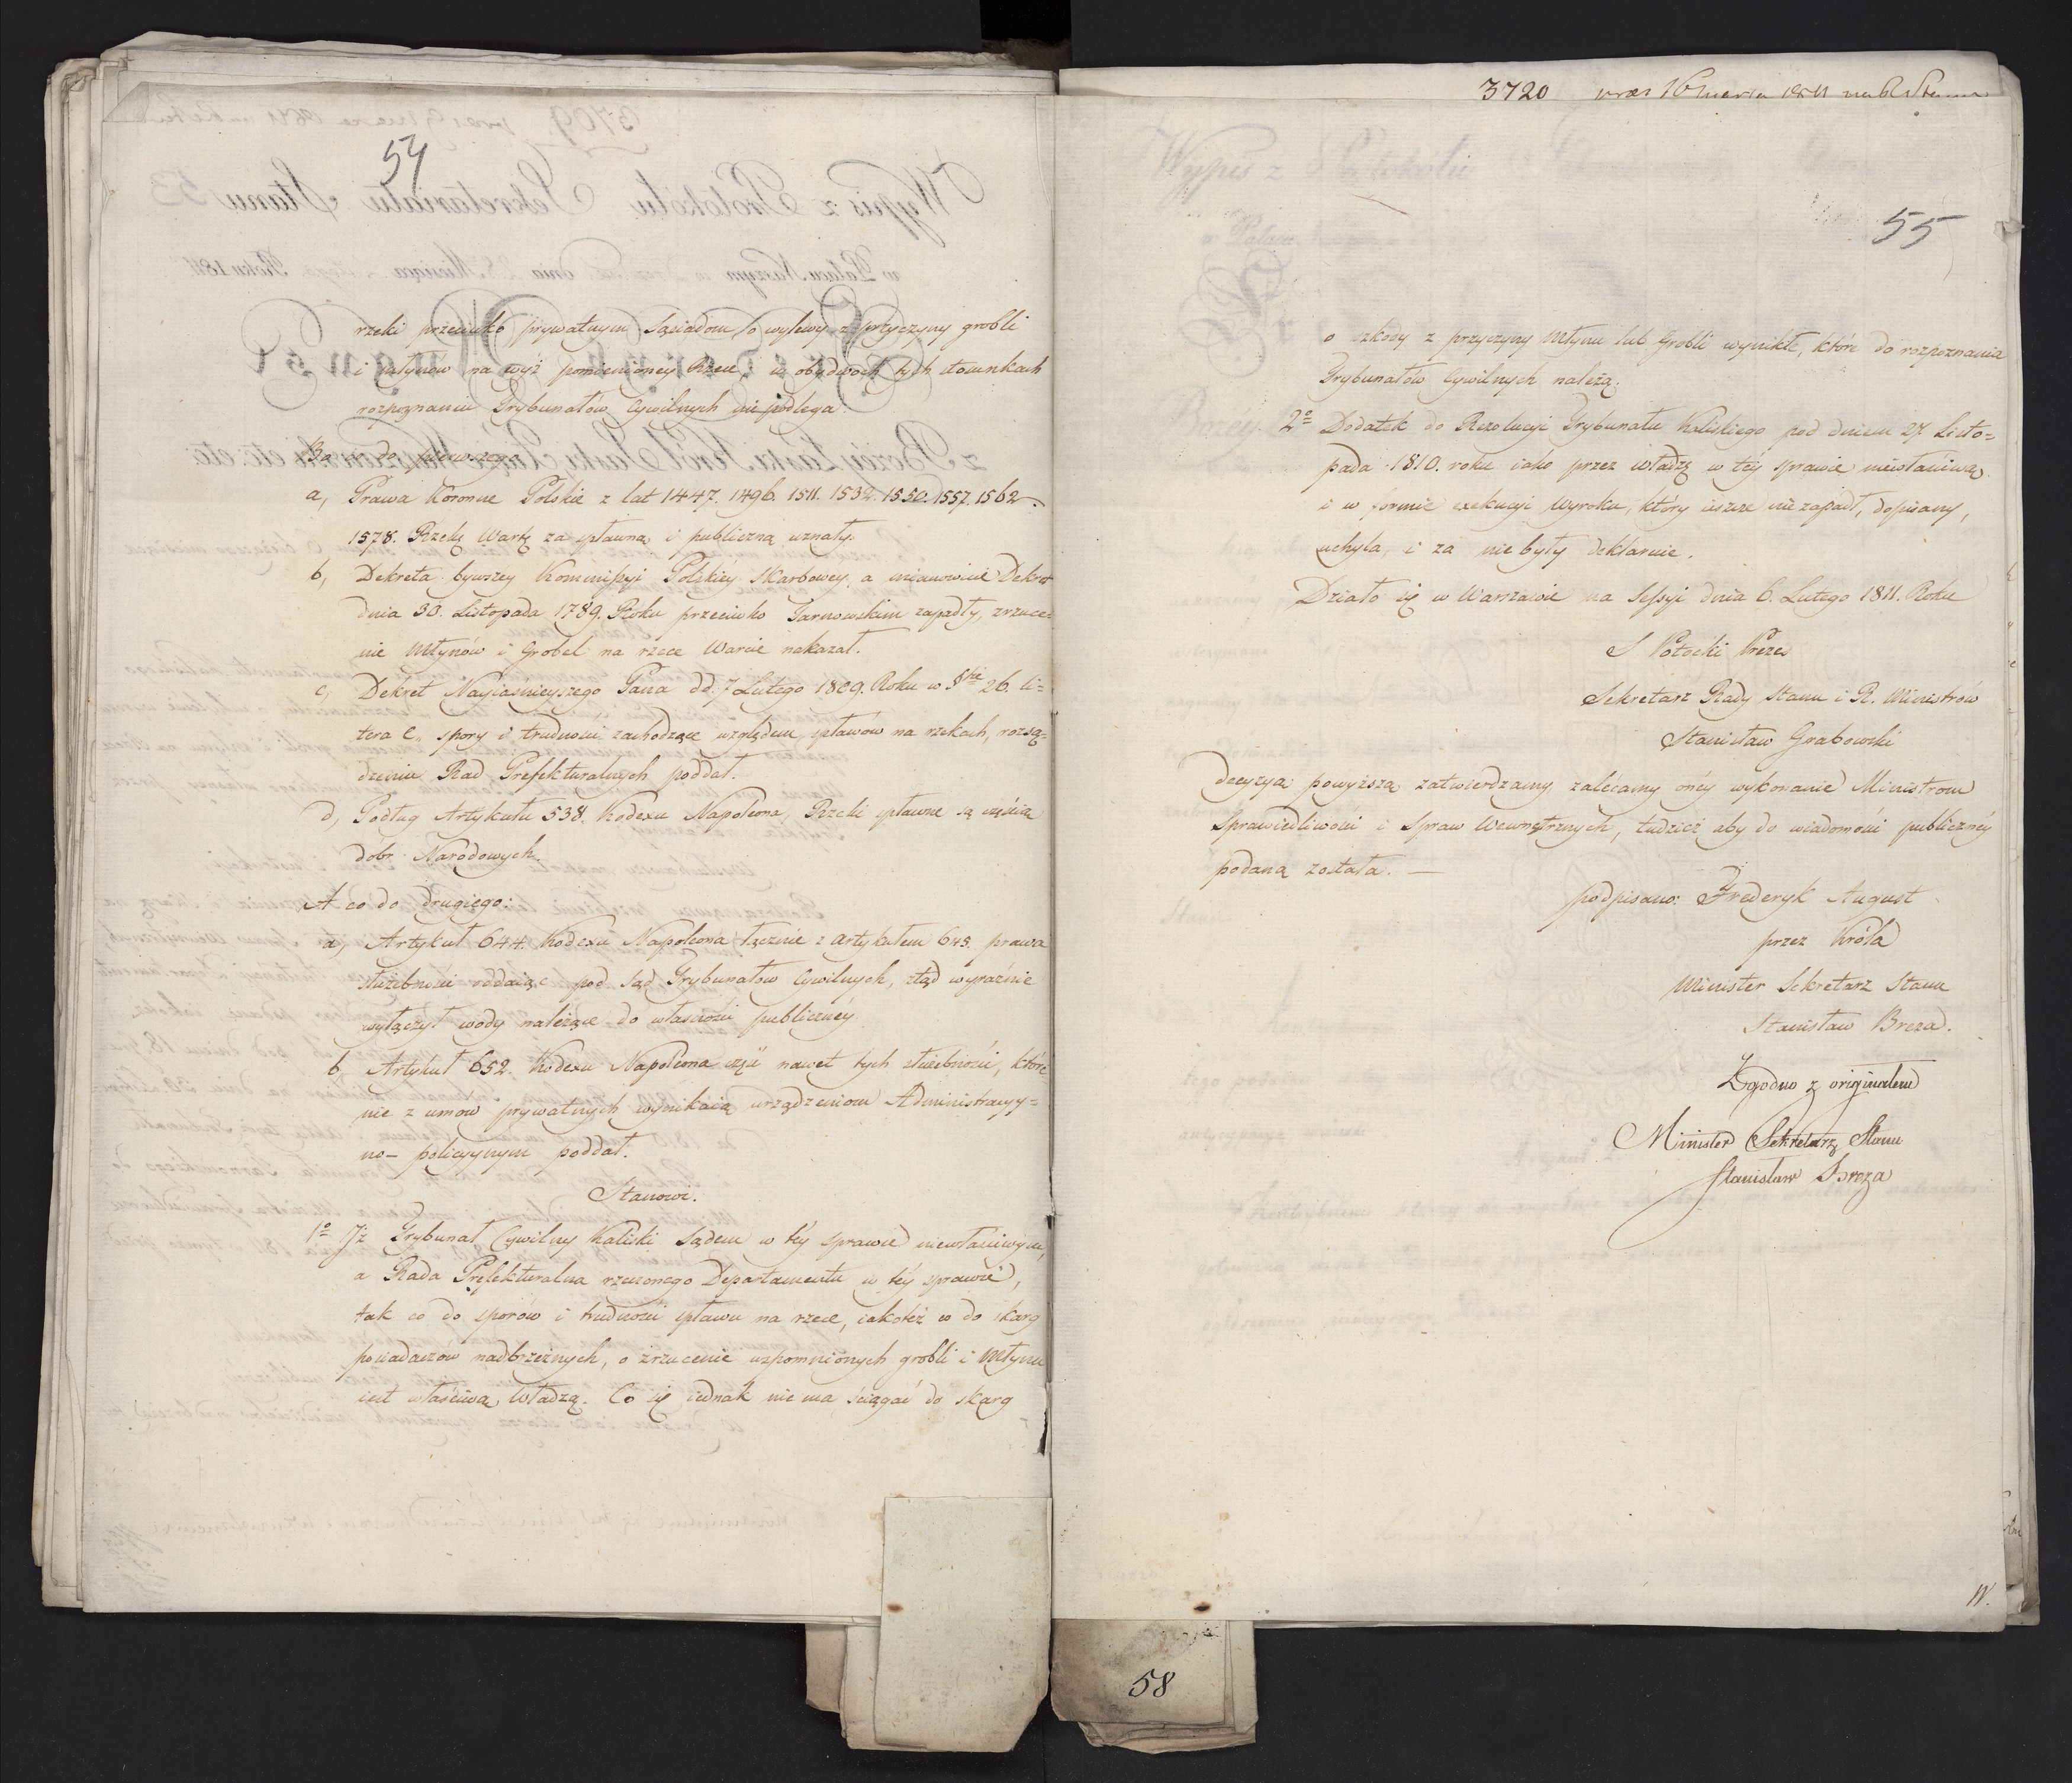 54
rzeki przeciwko prywatnym Sąsiadom o wylewy z przyczyny grobli
i młynów na wyż pomienioney Rzece, w obydwoch tych stosunkach
rozpoznaniu Trybunałów Cywilnych nie podlega.
Bo co do pierwszego
a, Prawa Koronne Polskie z lat 1447. 1496. 1511. 1532. 1550. 1557. 1562
1578. Rzekę Wartę za spławną i publiczną uznały.
b, Dekreta bywszey Kommissyi Polskiéy Skarbowey, a mianowicie Dekret
dnia 30. Listopada 1789. Roku przeciwko Tarnowskim zapadły, zrzuce=
nie Młynów i Grobel na rzece Warcie nakazał.
c, Dekret Nayiaśnieyszego Pana dd. 7 Lutego 1809. Roku w §fie 26. li=
tera C. spory i trudności zachodzące względem spławów na rzekach, rozsą=
dzeniu Rad Prefekturalnych poddał.
d, Podług Artykułu 538. Kodexu Napoleona, Rzeki spławne są częścią
dóbr Narodowych.
A co do drugiego:
a, Artykuł 644. Kodexu Napoleona łącznie z artykułem 645. prawa
służebności oddaiąc pod Sąd Trybunałów Cywilnych, ztąd wyraźnie
wyłączył wody należące do własności publicznéy
b, Artykuł 652. Kodexu Napoleona część nawet tych służebności, które
nie z umów prywatnych wynikaią urządzeniom Administracyy=
no-policyynym poddał.
Stanowi.
1o Iż Trybunał Cywilny Kaliski Sądem w téy sprawie niewłaściwym,
a Rada Prefekturalna rzeczonego Departamentu w téy sprawie,
tak co do sporów i trudności spławu na rzece, iakoteż co do skarg
posiadaczów nadbrzeżnych, o zrzucenie wspomnionych grobli i Młynu
iest właściwą Władzą. Co się iednak nie ma ściągać do skarg
3720 praes 16 Marca 1811 na R. Stanu
55
o szkody z przyczyny Młynu lub Grobli wynikłe, które do rozpoznania
Trybunałów Cywilnych należą.
2o Dodatek do Rezolucyi Trybunału Kaliskiego pod dniem 27 Listo=
pada 1810. roku iako przez władzę w téy sprawie niewłaściwą
i w formie exekucyi Wyroku, który ieszcze nie zapadł, dopisany,
uchyla, i za nie były deklaruie.
Działo się w Warszawie na Sessyi dnia 6. Lutego 1811. Roku
S Potocki Prezes
Sekretarz Rady Stanu i R. Ministrów
Stanisław Grabowski
decyzyą powyższą zatwierdzamy zalecamy onéy wykonanie Ministrom
Sprawiedliwości i Spraw Wewnętrznych, tudzież aby do wiadomości publicznéy
podaną została. —
podpisano: Fréderyk August
przez Króla
Minister Sekretarz Stanu
Stanisław Breza.
Zgodno z originałem
Minister Sekretarz Stanu
Stanisław Breza
W.
58